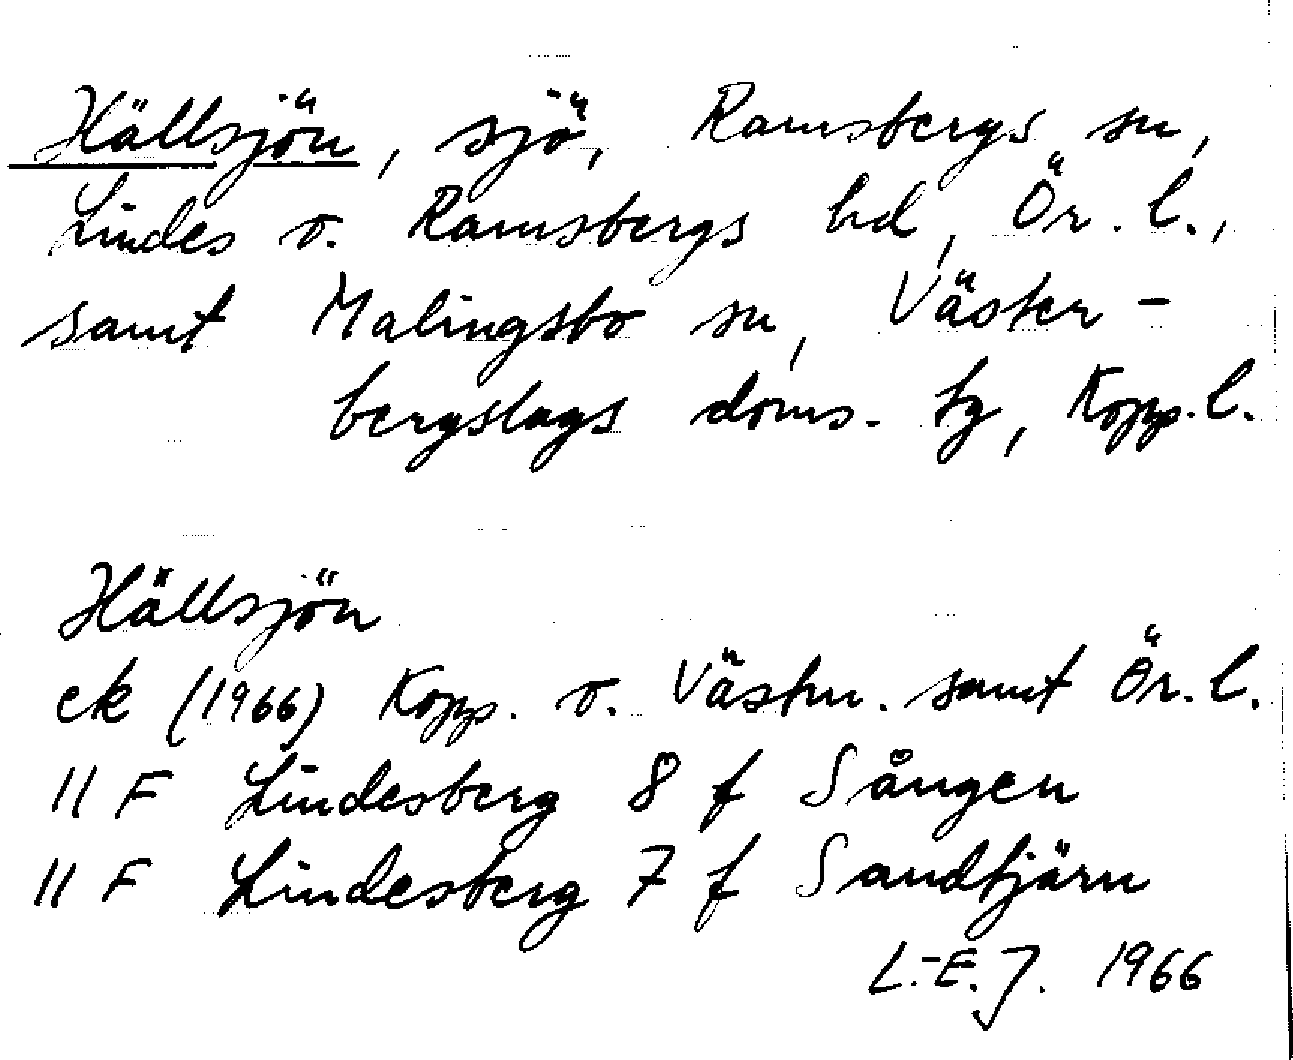 Hällsjön, sjö, Ramsbergs sn,
Lindes o. Ramsbergs hd, Ör. l.,
samt Malingsbo sn, Väster-
bergslags doms. tg, Kopp. l.
Hällsjön
ek (1966) Kopp. o. Västm. samt Ör. l.
11 F Lindesberg 8 f Sången
11 F Lindesberg 7 f Sandtjärn
L.-E. J. 1966